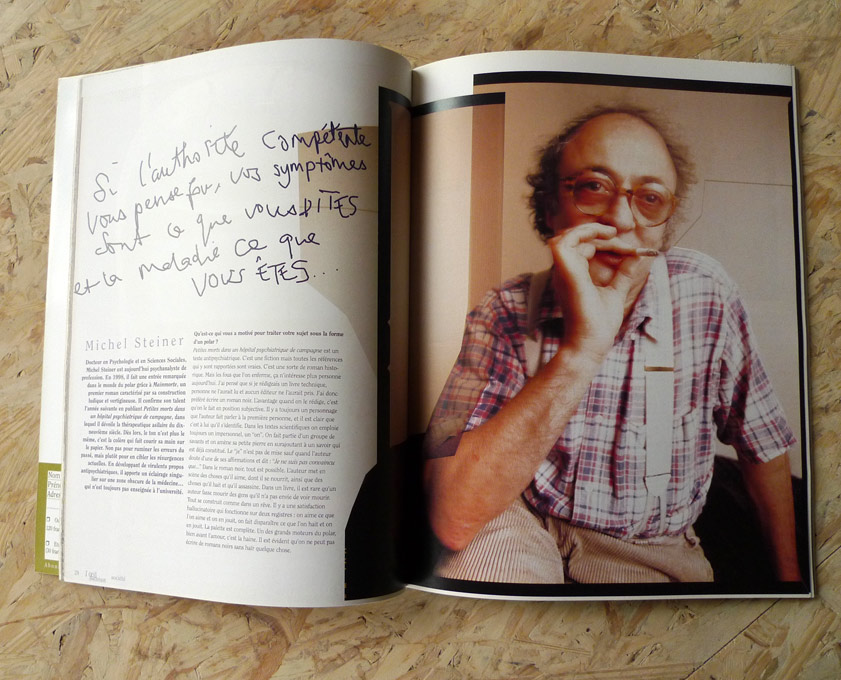 Si l'authorité compétente
vous pense fou, vos symptômes
sont ce que vous DITES
et la maladie ce que
VOUS ÊTES...
Michel Steiner
Docteur en Psychologie et en Sciences Sociales,
Michel Steiner est aujourd'hui psychanalyste de
profession. En 1998, il fait une entrée remarquée
dans le monde du polar grâce à Mainmorte, un
premier roman caractérisé par sa construction
ludique et vertigineuse. Il confirme son talent
l'année suivante en publiant Petites morts dans
un hôpital psychiatrique de campagne, dans
lequel il dévoile la thérapeutique asilaire du dix-
neuvième siècle. Dès lors, le ton n'est plus le
même, c'est la colère qui fait courir sa main sur
le papier. Non pas pour ruminer les erreurs du
passé, mais plutôt pour en cibler les résurgences
actuelles. En développant de virulents propos
antipsychiatriques, il apporte un éclairage singu-
lier sur une zone obscure de la médecine...
qui n'est toujours pas enseignée à l'université.
Qu'est-ce qui vous a motivé pour traiter votre sujet sous la forme
d'un polar ?
Petites morts dans un hôpital psychiatrique de campagne est un
texte antipsychiatrique. C'est une fiction mais toutes les références
qui y sont rapportées sont vraies. C'est une sorte de roman histo-
rique. Mais les fous que l'on enferme, ça n'intéresse plus personne
aujourd'hui. J'ai pensé que si je rédigeais un livre technique,
personne ne l'aurait lu et aucun éditeur ne l'aurait pris. J'ai donc
préféré écrire un roman noir. L'avantage quand on le rédige, c'est
qu'on le fait en position subjective. Il y a toujours un personnage
que l'auteur fait parler à la première personne, et il est clair que
c'est à lui qu'il s'identifie. Dans les textes scientifiques on emploie
toujours un impersonnel, un "on". On fait partie d'un groupe de
savants et on amène sa petite pierre en supputant à un savoir qui
est déjà constitué. Le "je" n'est pas de mise sauf quand l'auteur
doute d'une de ses affirmations et dit : "Je ne suis pas convaincu
que..." Dans le roman noir, tout est possible. L'auteur met en
scène des choses qu'il aime, dont il se nourrit, ainsi que des
choses qu'il hait et qu'il assassine. Dans un livre, il est rare qu'un
auteur fasse mourir des gens qu'il n'a pas envie de voir mourir.
Tout se construit comme dans un rêve. Il y a une satisfaction
hallucinatoire qui fonctionne sur deux registres : on aime ce que
l'on aime et on en jouit, on fait disparaître ce que l'on hait et on
en jouit. La palette est complète. Un des grands moteurs du polar,
bien avant l'amour, c'est la haine. Il est évident qu'on ne peut pas
écrire de romans noirs sans haïr quelque chose.
Nom
Préno
Adres